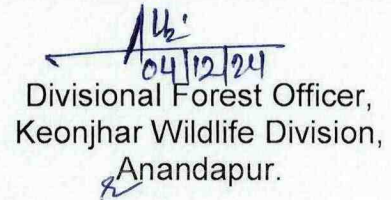 04/12/24
Divisional Forest Officer,
Keonjhar Wildlife Division,
Anandapur.